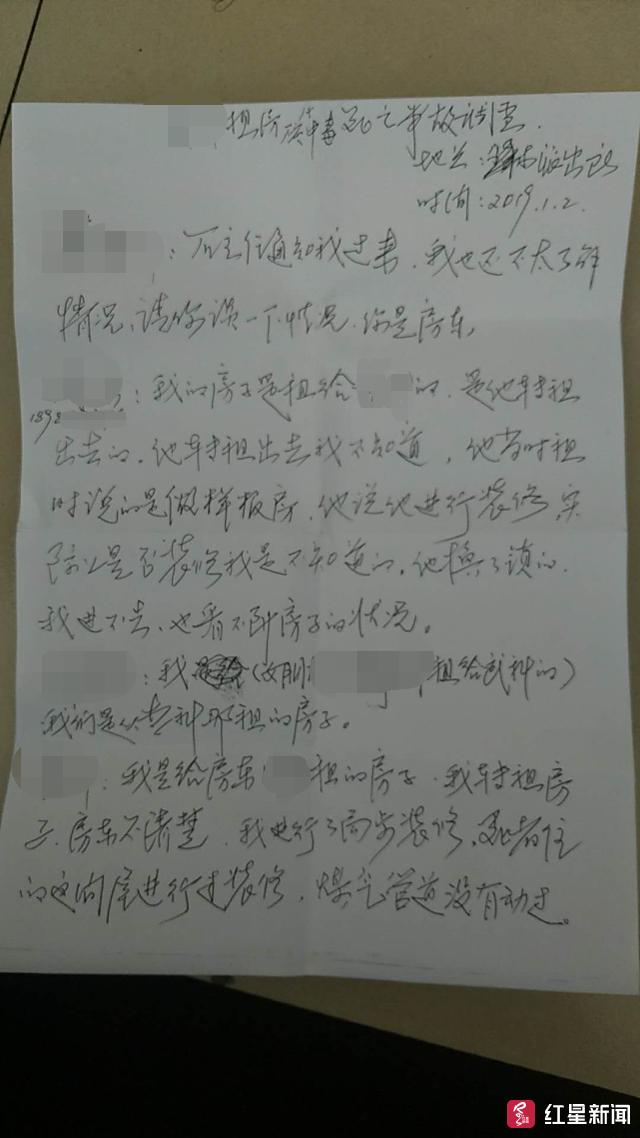 租房煤中毒死亡事故调查.
地点:派出所
时间:2019.1.2.
:石主任通知我过来,我也还不太了解
情况,请你谈一下情况.你是房东,
:我的房子是租给的.是他转租
189
出去的.他转租出去我不知道,他当时租
时说的是做样板房.他说他进行装修,实
际上是否装修我是不知道的.他换了锁的.
我进不去、也看不到房子的状况。
:我(女朋租给的)
我们是从那租的房子。
:我是给房东租的房子.我转租房
子.房东不清楚.我进行了局部装修,死者住
的这间屋进行过装修,煤气管道没有动过。
红星新闻